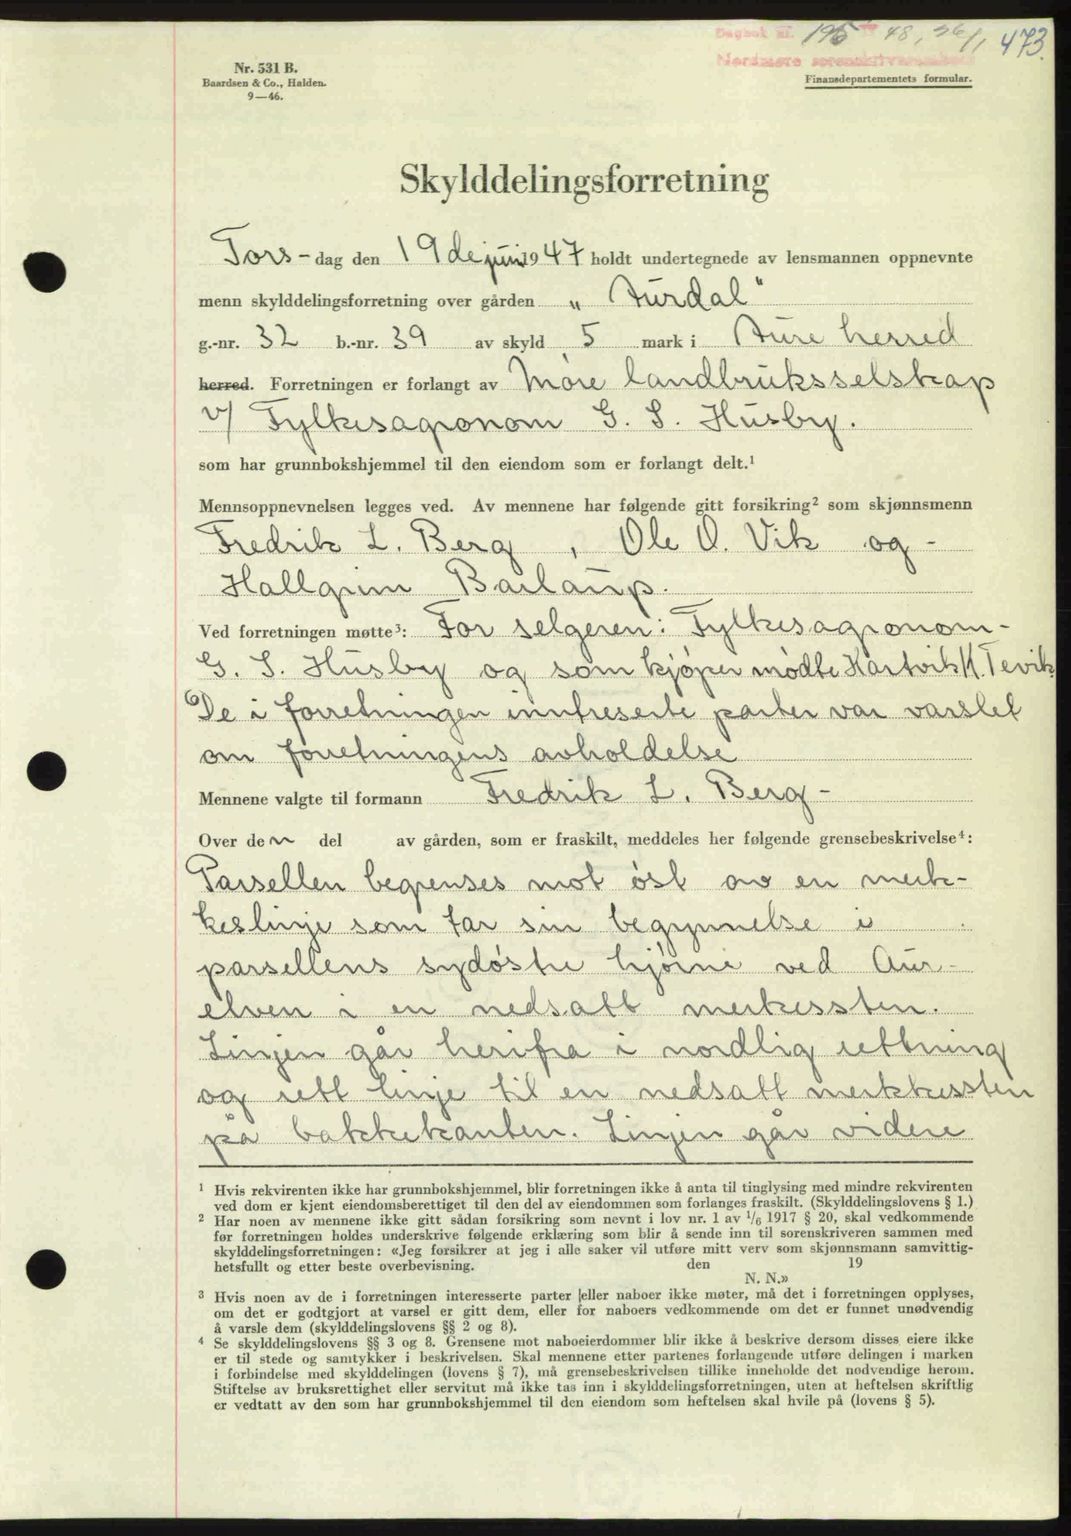 Dagbok nr. 195 48, 26/1 473.
Nordmøre sorenskriverembete
Nr. 531 B.
Baardsen & Co., Halden.
9—46.
Finansdepartementets formular.
Skylddelingsforretning
Tors- dag den 19de juni 1947 holdt undertegnede av lensmannen oppnevnte
menn skylddelingsforretning over gården „ Aurdal“
g.-nr. 32 b.-nr. 39 av skyld 5 mark i Aure herred
herred. Forretningen er forlangt av Møre landbruksselskap
v/ Fylkesagronom G. S. Husby.
som har grunnbokshjemmel til den eiendom som er forlangt delt.¹
Mennsoppnevnelsen legges ved. Av mennene har følgende gitt forsikring² som skjønnsmenn
Fredrik L. Berg , Ole O. Vik og -
Hallgrim Barlaup.
Ved forretningen møtte³: For selgeren: Fylkesagronom-
G. S. Husby og som kjøper mødte Hartvik K. Tevik.
De i forretningen inntreserte parter var varslet
om forretningens avholdelse
Mennene valgte til formann Fredrik L. Berg -
Over den del av gården, som er fraskilt, meddeles her følgende grensebeskrivelse⁴:
Parsellen begrenses mot øst av en merk-
keslinje som tar sin begynnelse i
parsellens sydøstre hjørne ved Aur-
elven i en nedsatt merkessten.
Linjen går herifra i nordlig rettning
og rett linje til en nedsatt merkkessten
på bakkekanten. Linjen går videre
¹ Hvis rekvirenten ikke har grunnbokshjemmel, blir forretningen ikke å anta til tinglysing med mindre rekvirenten
ved dom er kjent eiendomsberettiget til den del av eiendommen som forlanges fraskilt. (Skylddelingslovens § 1.)
² Har noen av mennene ikke gitt sådan forsikring som nevnt i lov nr. 1 av 1/6 1917 § 20, skal vedkommende
før forretningen holdes underskrive følgende erklæring som blir å sende inn til sorenskriveren sammen med
skylddelingsforretningen: «Jeg forsikrer at jeg i alle saker vil utføre mitt verv som skjønnsmann samvittig-
hetsfullt og etter beste overbevisning. den 19
N. N.»
³ Hvis noen av de i forretningen interesserte parter eller naboer ikke møter, må det i forretningen opplyses,
om det er godtgjort at varsel er gitt dem, eller for naboers vedkommende om det er funnet unødvendig
å varsle dem (skylddelingslovens §§ 2 og 8).
⁴ Se skylddelingslovens §§ 3 og 8. Grensene mot naboeierdommer blir ikke å beskrive dersom disses eiere ikke
er til stede og samtykker i beskrivelsen. Skal mennene etter partenes forlangende utføre delingen i marken
i forbindelse med skylddelingen (lovens § 7), må grensebeskrivelsen tillike inneholde det nødvendige herom.
Stiftelse av bruksrettighet eller servitut må ikke tas inn i skylddelingsforretningen, uten at heftelsen skriftlig
er vedtatt av den som har grunnbokshjemmel til den eiendom som heftelsen skal hvile på (lovens § 5).